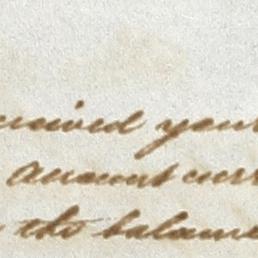 eceived your
Account curr
the balance